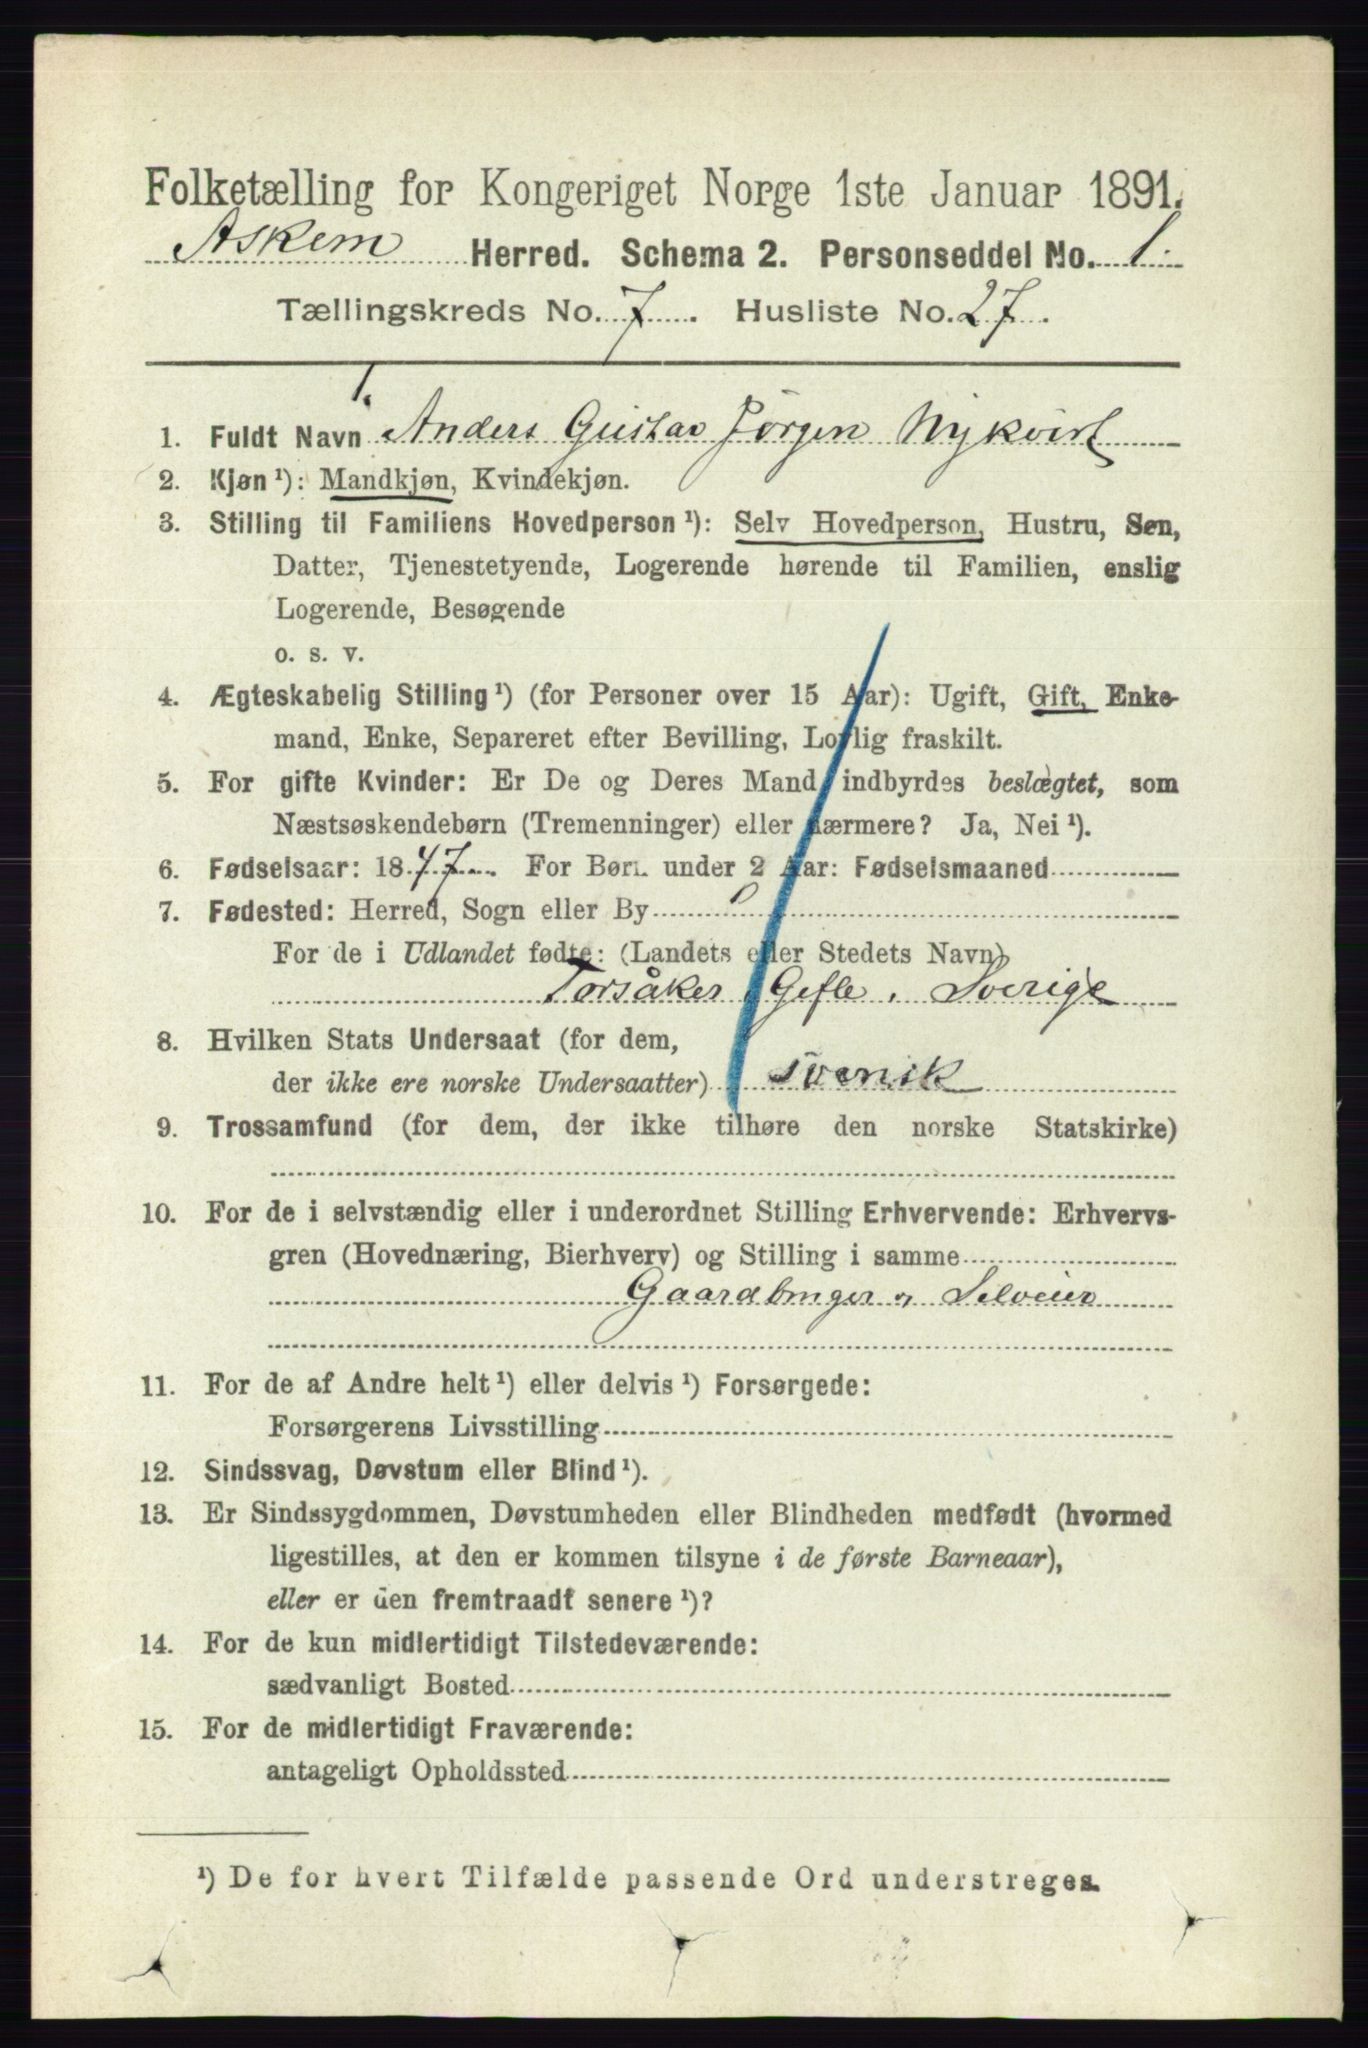 Folketælling for Kongeriget Norge 1ste Januar 1891.
Askem Herred. Schema 2. Personseddel No. 1.
Tællingskreds No. 7. Husliste No. 27.
1.
1. Fuldt Navn Anders Gustav Jörgen Nykvist
2. Kjøn ¹): Mandkjøn, Kvindekjøn.
3. Stilling til Familiens Hovedperson ¹): Selv Hovedperson, Hustru, Søn,
Datter, Tjenestetyende, Logerende hørende til Familien, enslig
Logerende, Besøgende
o. s. v.
4. Ægteskabelig Stilling ¹) (for Personer over 15 Aar): Ugift, Gift, Enke-
mand, Enke, Separeret efter Bevilling, Lovlig fraskilt.
5. For gifte Kvinder: Er De og Deres Mand indbyrdes beslægtet, som
Næstsøskendebørn (Tremenninger) eller nærmere? Ja, Nei ¹).
6. Fødselsaar: 1847. For Børn under 2 Aar: Fødselsmaaned
7. Fødested: Herred, Sogn eller By
For de i Udlandet fødte: (Landets eller Stedets Navn)
Torsåker, Gefle, Sverige
8. Hvilken Stats Undersaat (for dem,
der ikke ere norske Undersaatter) svensk
9. Trossamfund (for dem, der ikke tilhøre den norske Statskirke)
10. For de i selvstændig eller i underordnet Stilling Erhvervende: Erhvervs-
gren (Hovednæring, Bierhverv) og Stilling i samme
Gaardbruger, Selveier
11. For de af Andre helt ¹) eller delvis ¹) Forsørgede:
Forsørgerens Livsstilling
12. Sindssvag, Døvstum eller Blind ¹).
13. Er Sindssygdommen, Døvstumheden eller Blindheden medfødt (hvormed
ligestilles, at den er kommen tilsyne i de første Barneaar),
eller er den fremtraadt senere ¹)?
14. For de kun midlertidigt Tilstedeværende:
sædvanligt Bosted
15. For de midlertidigt Fraværende:
antageligt Opholdssted
¹) De for hvert Tilfælde passende Ord understreges.